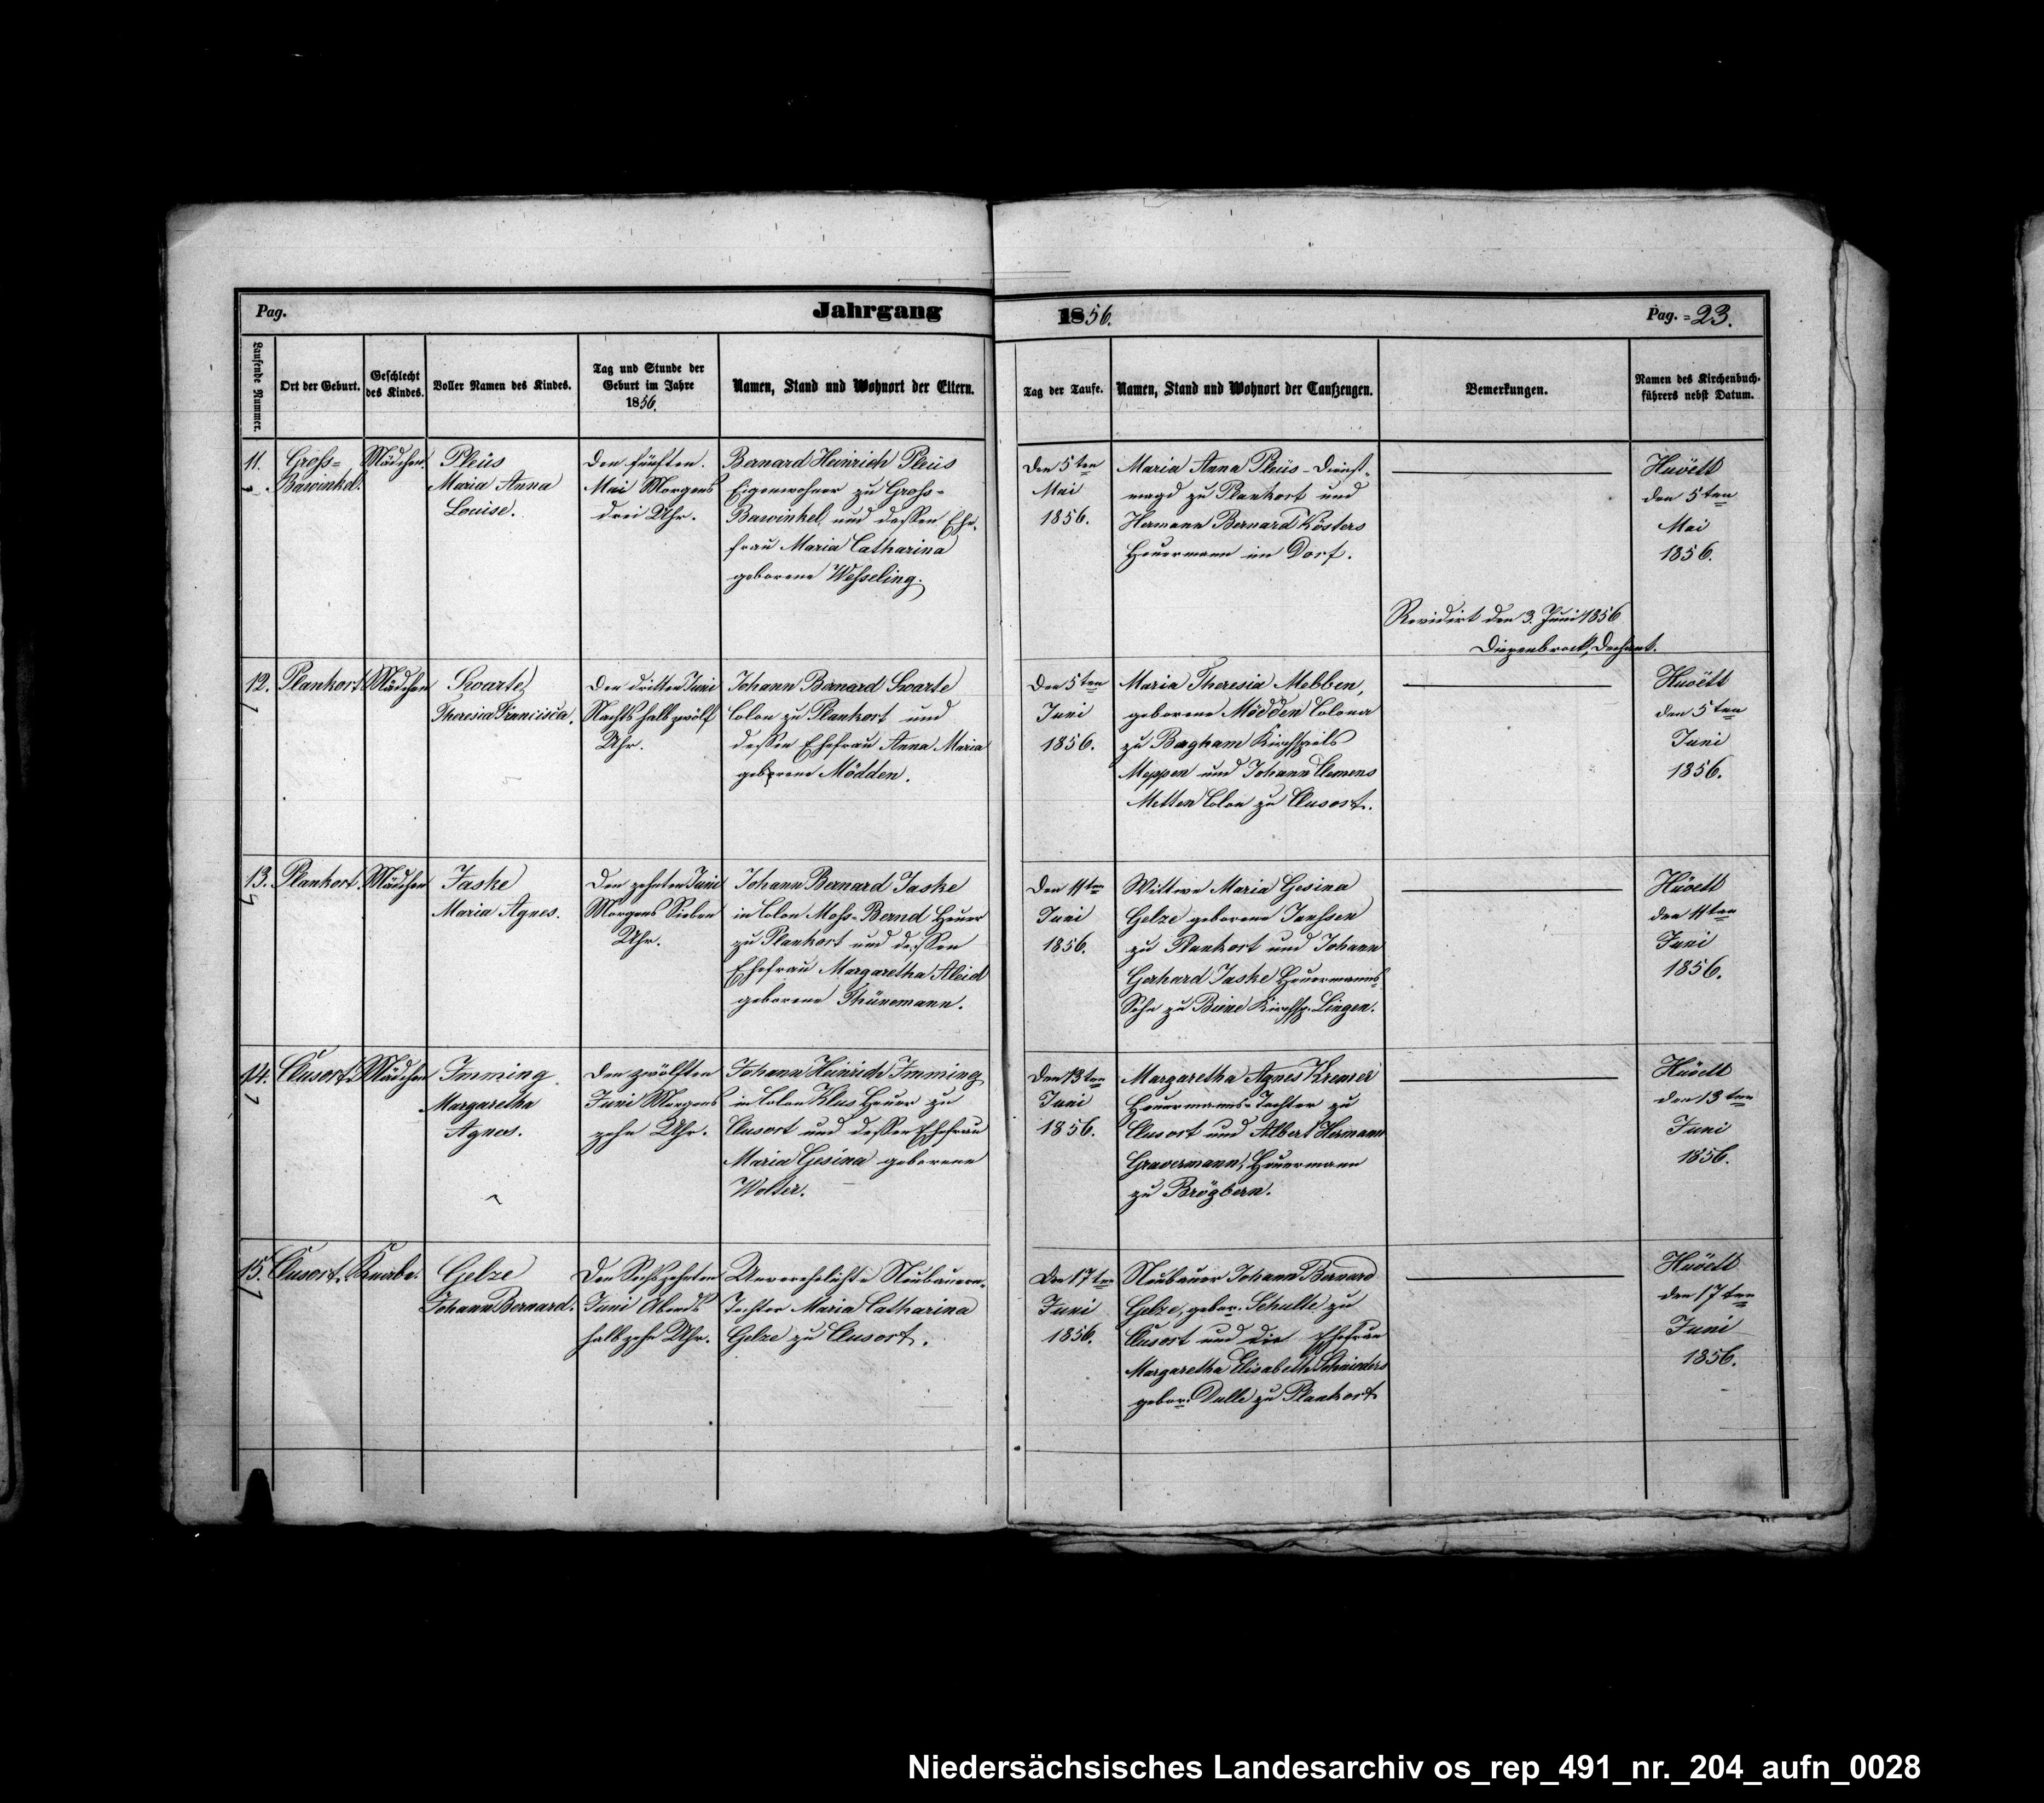 Pag.
Jahrgang
1856.
Pag. = 23.
Laufende Nummer.
Ort der Geburt.
Geschlecht
des Kindes.
Voller Namen des Kindes.
Tag und Stunde der
Geburt im Jahre
1856.
Namen, Stand und Wohnort der Eltern.
Tag der Taufe.
Namen, Stand und Wohnort der Taufzeugen.
Bemerkungen.
Namen des Kirchenbuch-
führers nebst Datum.
11.
Groß=
Bawinkel.
Mädchen.
Pleüs
Maria Anna
Louise.
Den fünften.
Mai Morgens
drei Uhr.
Bernard Heinrich Pleüs
Eigenwohner zu Groß-
Bawinkel, und dessen Ehe-
frau Maria Catharina
geborene Wesseling.
Den 5ten
Mai
1856.
Maria Anna Pleüs - Dienst-
magd zu Plankort und
Hermann Bernard Kösters
Heuermann im Dorf.
Huvett
den 5ten
Mai
1856.
Revidirt den 3. Juni 1856
Diepenbrock, Dechant.
12.
Plankort
Mädchen
Swarte
Theresia Francisca.
Den dritten Juni
Nachts halb zwölf
Uhr.
Johann Bernard Swarte
Colon zu Plankort und
dessen Ehefrau Anna Maria
geborene Mödden.
Den 5ten
Juni
1856.
Maria Theresia Mebben,
geborene Mödden Colona
zu Bergham Kirchspiels
Meppen und Johann Clemens
Metten Colon zu Clusort.
Huvett
den 5ten
Juni
1856.
13.
Plankort.
Mädchen
Jaske
Maria Agnes.
Den zehnten Juni
Morgens Sieben
Uhr.
Johann Bernard Jaske
in Colon Moss-Bernd Heuer
zu Plankort und dessen
Ehefrau Margaretha Aleid
geborene Thünemann.
Den 11ten
Juni
1856.
Wittwe Maria Gesina
Gelze geborene Janssen
zu Plankort und Johann
Gerhard Jaske Heuermanns-
Sohn zu Biene Kirchsp. Lingen.
Hüvett
den 11ten
Juni
1856.
14.
Clusort.
Mädchen
Imming
Margaretha
Agnes.
Den zwölften
Juni Morgens
zehn Uhr.
Johann Heinrich Imming
in Colon Klus Heuer zu
Clusort und dessen Ehefrau
Maria Gesina geborene
Wolter.
Den 13ten
Juni
1856.
Margaretha Agnes Kremer
Heuermanns-Tochter zu
Clusort und Albert Hermann
Gravermann, Heuermann
zu Brögbern.
Hüvett
den 13ten
Juni
1856.
15.
Clusort.
Knabe.
Gelze
Johann Bernard.
Den Sechszehnten
Juni Abends
halb zehn Uhr.
Unverehelichte Neubauern-
Tochter Maria Catharina
Gelze zu Clusort.
Den 17ten
Juni
1856.
Neubauer Johann Bernard
Gelze, gebor. Schulte zu
Clusort und die Ehefrau
Margaretha Elisabeth Schnieders
gebor. Dalle zu Plankort
Hüvett
den 17ten
Juni
1856.
Niedersächsisches Landesarchiv os_rep_491_nr._204_aufn_0028